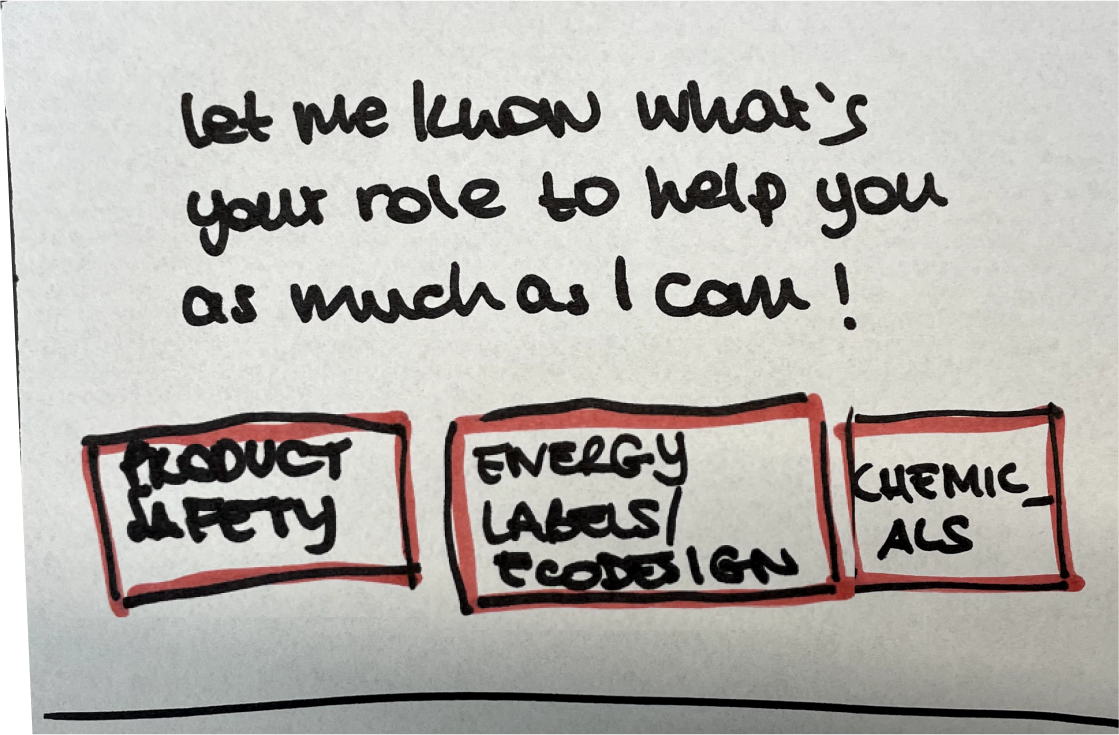 let me know what's
your role to help you
as much as I can!
PRODUCT
SAFETY
ENERGY
LABELS/
ECODESIGN
CHEMIC_
ALS